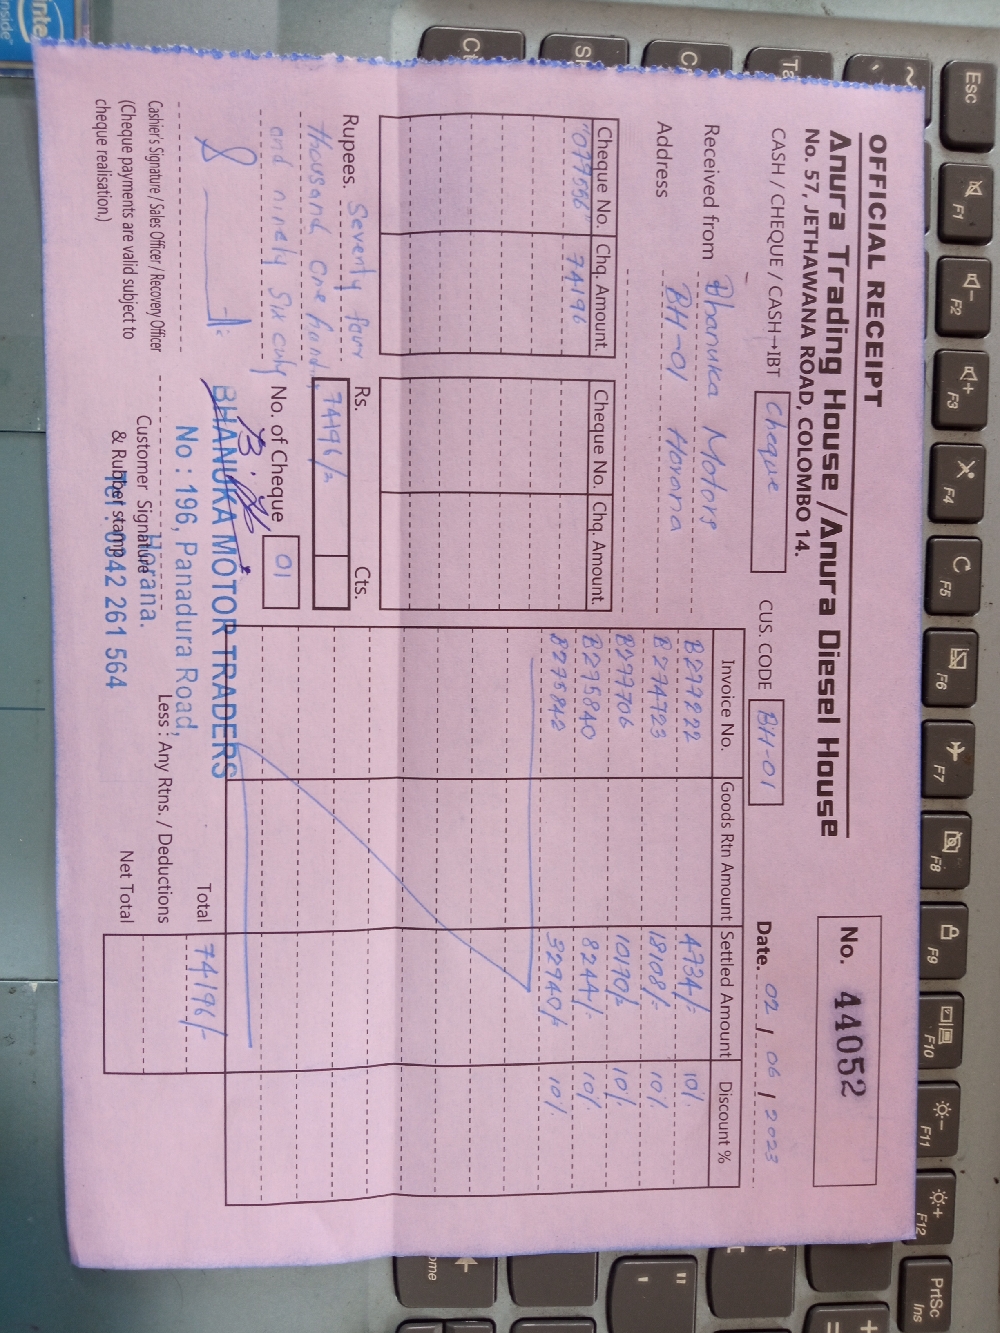 OFFICIAL RECEIPT
Anura Trading House / Anura Diesel House
No. 57, JETHAWANA ROAD, COLOMBO 14.
No. 44052
CASH / CHEQUE / CASH→IBT Cheque
CUS. CODE BH-01
Date. 02 / 06 / 2023
Received from Bhanuka Motors
Address BH-01 Horana
Cheque No. Chq. Amount. Cheque No. Chq. Amount.
077556 74196
Invoice No. Goods Rtn Amount Settled Amount Discount %
B277222 4734/- 10%
B274723 18108/- 10%
B277706 10170/- 10%
B275840 8244/- 10%
B275842 32940/- 10%
Rupees. Seventy four
thousand one hund.
and ninety six only
Rs. Cts.
74196/=
No. of Cheque 01
Total 74196/-
Less : Any Rtns. / Deductions
Net Total
Cashier's Signature / Sales Officer / Recovery Officer
(Cheque payments are valid subject to
cheque realisation.)
Customer Signature
& Rubber stamp
BHANUKA MOTOR TRADERS
No : 196, Panadura Road,
Horana.
Tel : 0342 261 564
Esc
F1
F2
F3
F4
F5
F6
F7
F8
F9
F10
F11
F12
PrtSc
Ins
inside